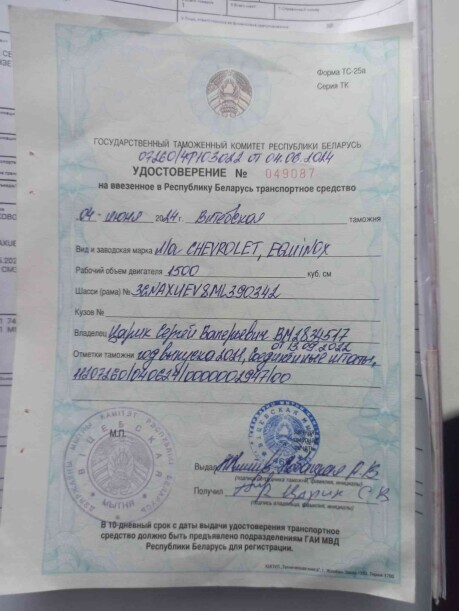 Форма ТС-25а
Серия ТК
ГОСУДАРСТВЕННЫЙ ТАМОЖЕННЫЙ КОМИТЕТ РЕСПУБЛИКИ БЕЛАРУСЬ
07260/4Т103022 от 04.06.2024
УДОСТОВЕРЕНИЕ № 049087
на ввезенное в Республику Беларусь транспортное средство
04 июня 2024 г. Витебская таможня
Вид и заводская марка л/а CHEVROLET, EQUINOX
Рабочий объем двигателя 1500 куб. см
Шасси (рама) № 3GNAXUEV8ML390342
Кузов №
Владелец Царик Сергей Валерьевич ВМ2831517
от 13.09.2022
Отметки таможни год выпуска 2021, Соединенные штаты,
11207260/040624/0000002947/00
М.П.
ВІЦЕБСКАЯ
МЫТНЯ
Выдал
Получил Царик С.В.
В 10-дневный срок с даты выдачи удостоверения транспортное
средство должно быть предъявлено подразделениям ГАИ МВД
Республики Беларусь для регистрации.